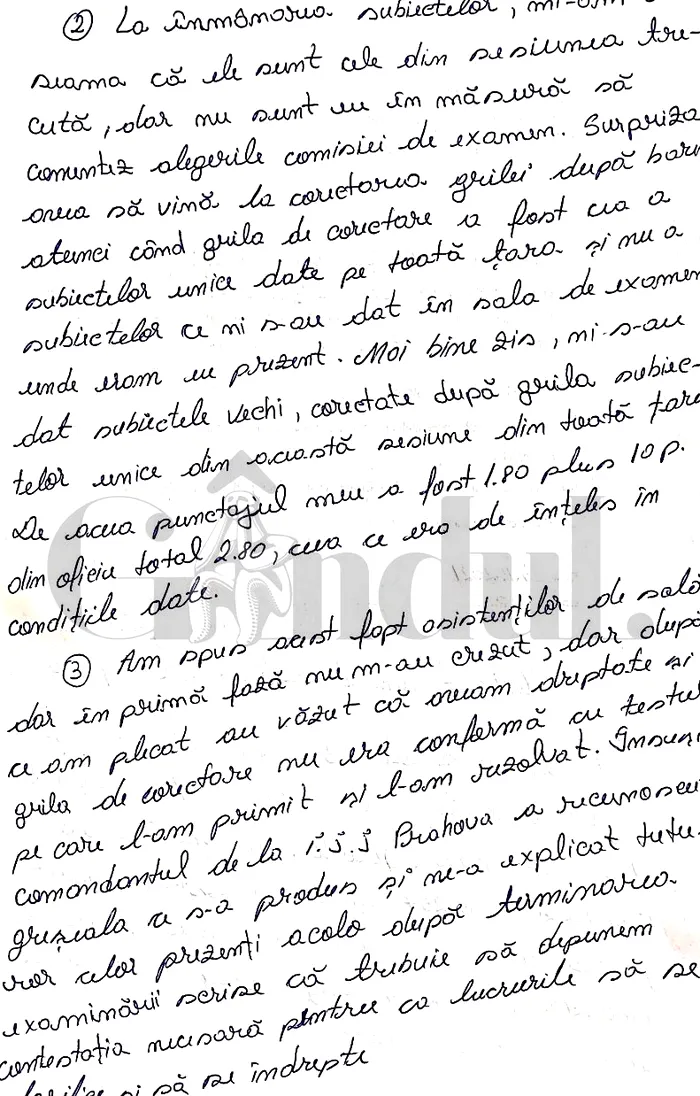 ② La înmânarea subiectelor, mi-am
seama că ele sunt cele din sesiunea tre-
cută, dar nu sunt eu în măsură să
comentez alegerile comisiei de examen. Surpriza
avea să vină la corectarea grilei după barem
atunci când grila de corectare a fost cea a
subiectelor unice date pe toată țara și nu a
subiectelor ce ni s-au dat în sala de examen
unde eram eu prezent. Mai bine zis, mi-s-au
dat subiectele vechi, corectate după grila subiec-
telor unice din această sesiune din toată țara
De aceea punctajul meu a fost 1.80 plus 10 p.
din oficiu total 2.80, ceea ce era de înțeles în
condițiile date.
Gândul.
③ Am spus acest fapt asistenților de sală
dar în primă fază nu m-au crezut, dar după
ce am plecat au văzut că aveam dreptate și
grila de corectare nu era conformă cu testul
pe care l-am primit și l-am rezolvat. Însuși
comandantul de la I.J.J Prahova a recunoscut
greșeala ce s-a produs și ne-a explicat tutu-
ror celor prezenți acolo după terminarea
examinării scrise că trebuie să depunem
contestația necesară pentru ca lucrurile să se
și să se îndrepte